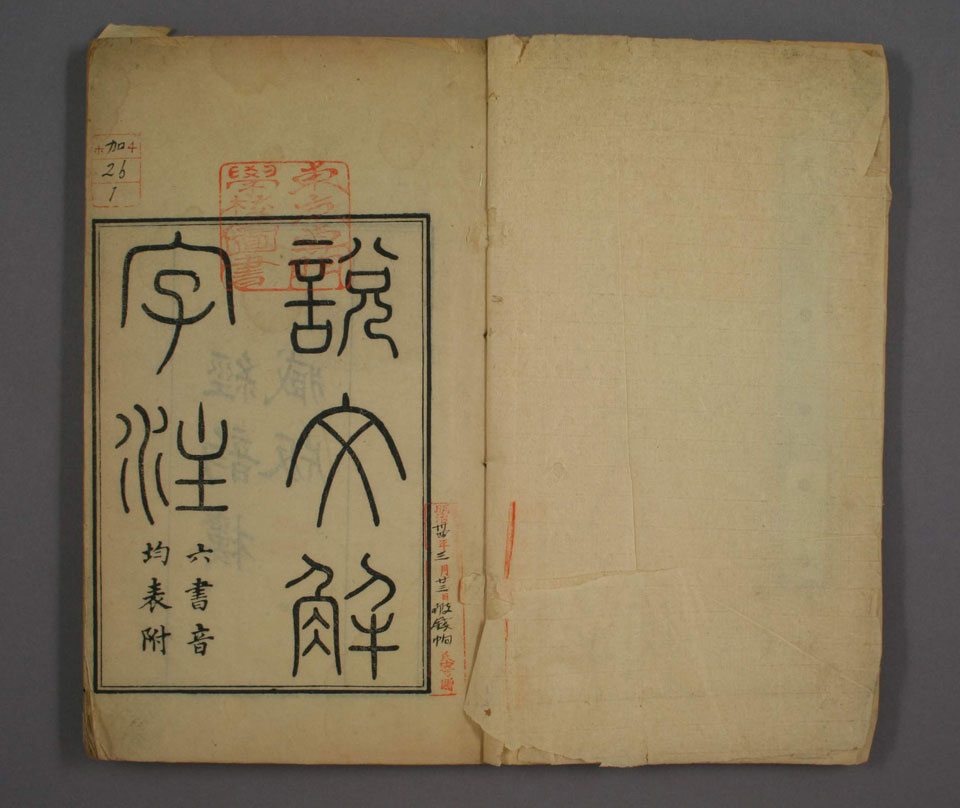 東京專門
學校圖書
說文解
字注
六書音
均表附
加
26
1